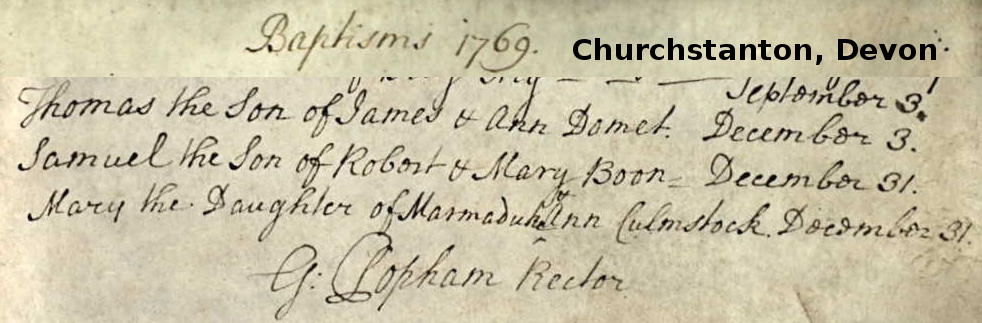 Baptisms 1769.
Churchstanton, Devon
September 3.
Thomas the Son of James & Ann Domet. December 3.
Samuel the Son of Robert & Mary Boon = December 31.
Mary the Daughter of Marmaduke & Ann Culmstock. December 31.
G: Popham Rector